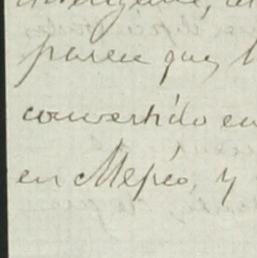 parece que
convertido en
en Mejico, y